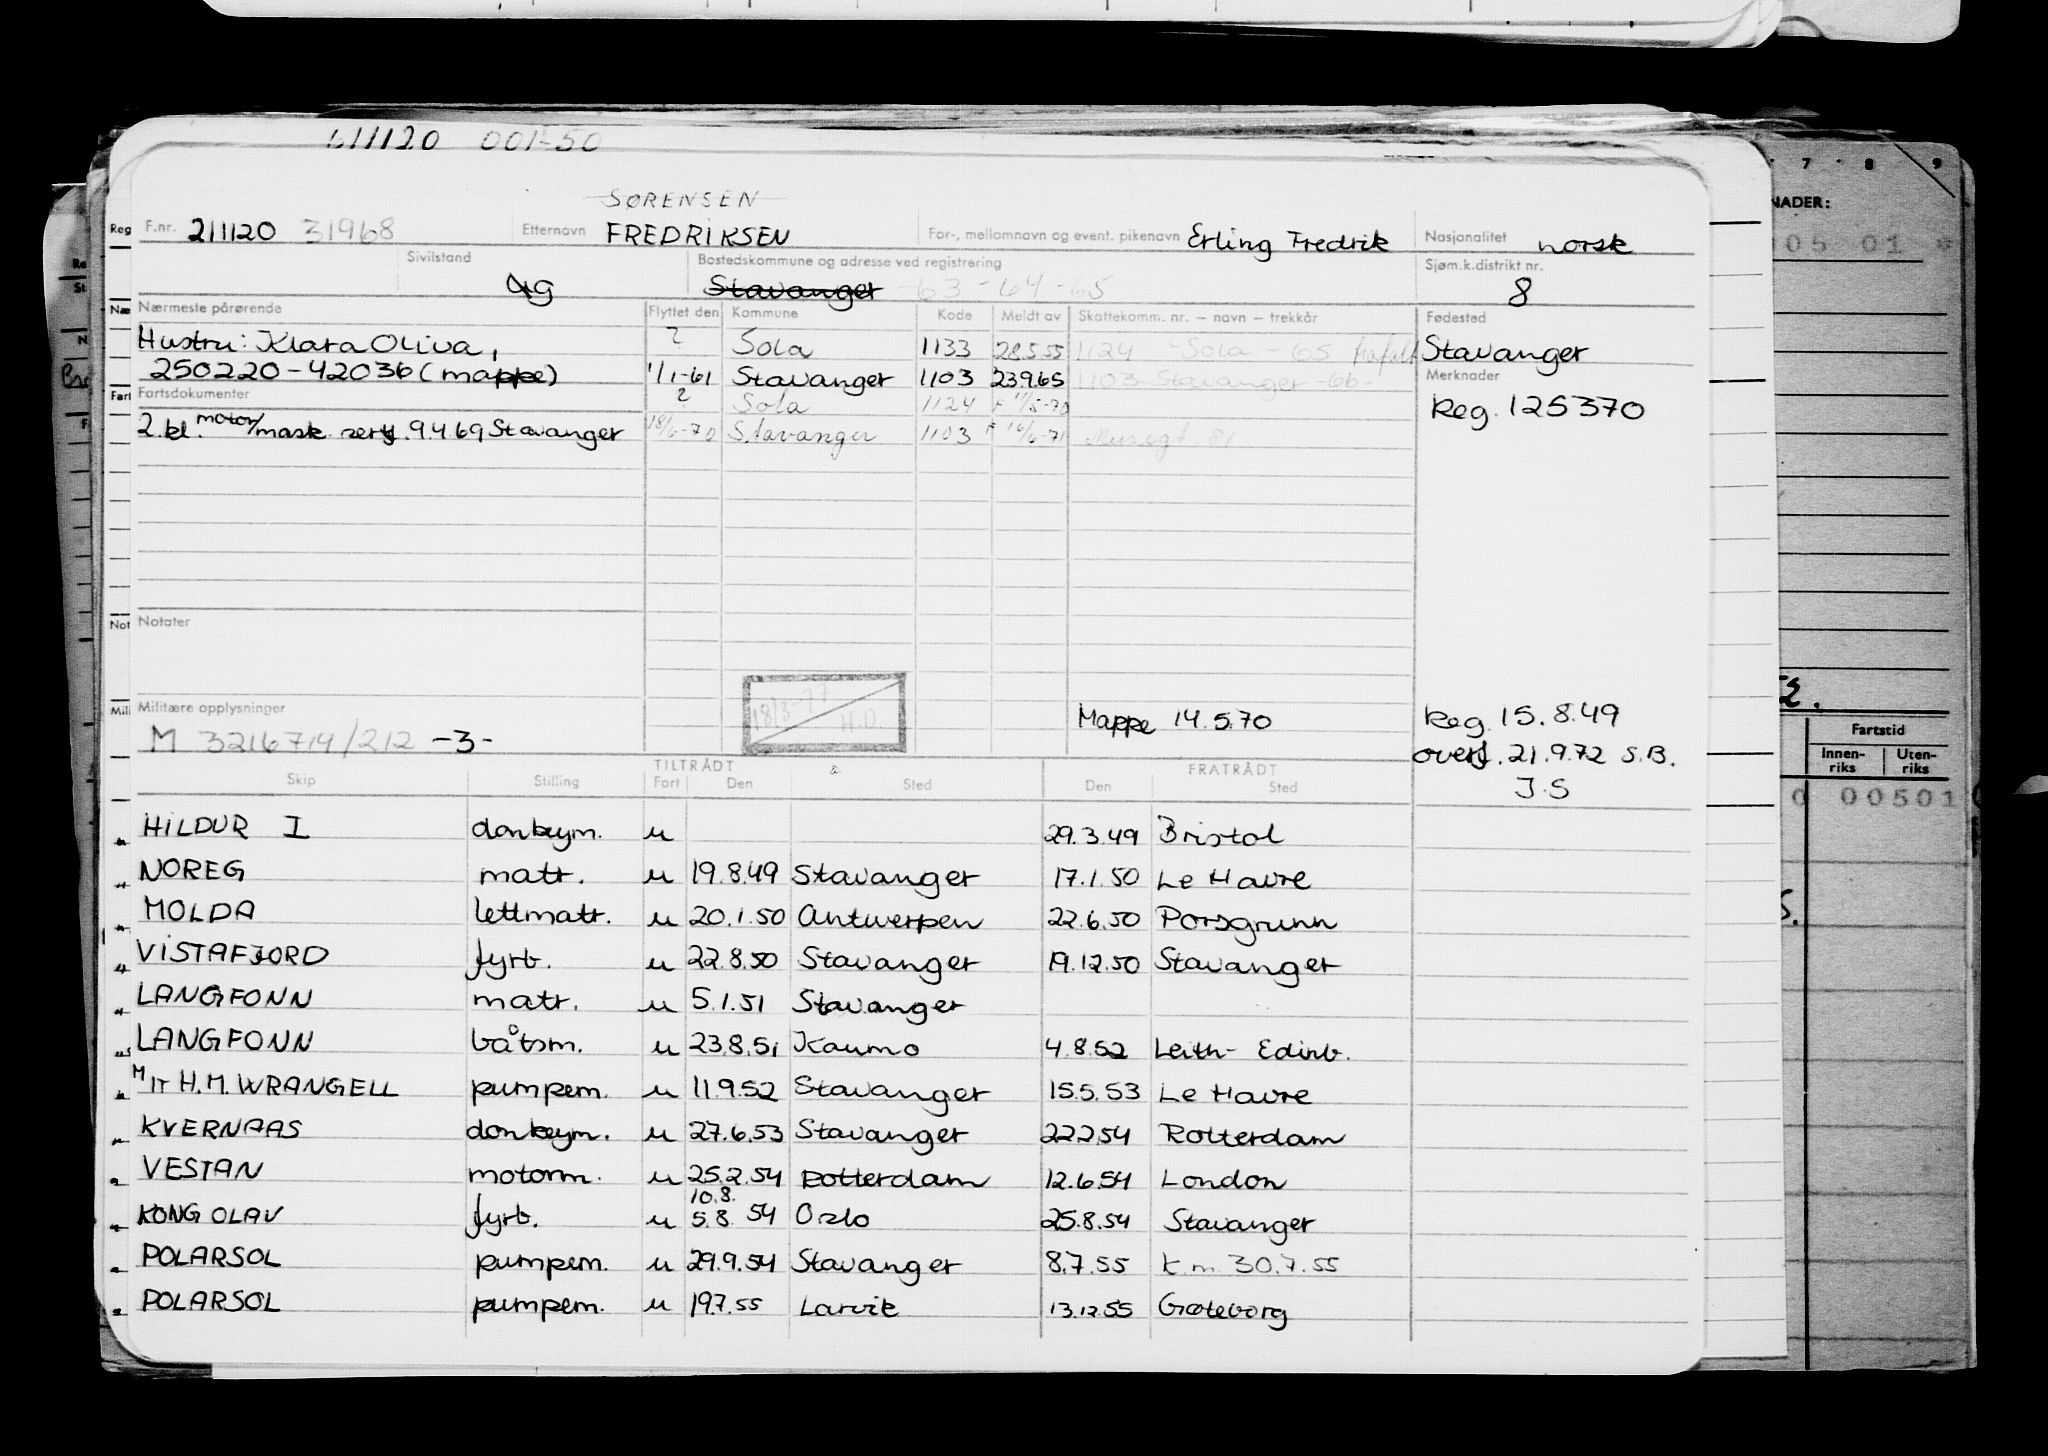 611120 001-50
SØRENSEN
F.nr. 211120 31968 Etternavn FREDRIKSEN For-, mellomnavn og event. pikenavn Erling Fredrik Nasjonalitet norsk
Sivilstand g Bostedskommune og adresse ved registrering Stavanger -63 -64 -65 Sjøm.k.distrikt nr. 8
Nærmeste pårørende Flyttet den Kommune Kode Meldt av Skattekomm. nr. – navn – trekkår Fødested
Hustru: Klara Oliva, ? Sola 1133 28.5.55 1124 - Sola - 65 Stavanger
250220-42036 (mappe) 1/1-61 Stavanger 1103 23.9.65 1103 Stavanger -66- Merknader
Fartsdokumenter ? Sola 1124 F 11/5-70 Reg. 125370
2. kl. motor/mask. sert. 9.4.69 Stavanger 18/6-70 Stavanger 1103 F 16/6-71
Notater
Militære opplysninger Mappe 14.5.70 Reg. 15.8.49
M 3216714/212 -3- 18/3-77 H.O overf. 21.9.72 S.B.
J.S
TILTRÅDT FRATRÅDT
Skip Stilling Fart Den Sted Den Sted
HILDUR I donkeym. u 29.3.49 Bristol
NOREG matr. u 19.8.49 Stavanger 17.1.50 Le Havre
MOLDA lettmatr. u 20.1.50 Antwerpen 22.6.50 Porsgrunn
VISTAFJORD fyrb. u 22.8.50 Stavanger 19.12.50 Stavanger
LANGFONN matr. u 5.1.51 Stavanger
LANGFONN båtsm. u 23.8.51 Kaumo 4.8.52 Leith- Edinb.
M/T H.M. WRANGELL pumpem. u 11.9.52 Stavanger 15.5.53 Le Havre
KVERNAAS donkeym. u 27.6.53 Stavanger 22.2.54 Rotterdam
VESTAN motorm. u 25.2.54 Rotterdam 12.6.54 London
10.8.
KONG OLAV fyrb. u 5.8.54 Oslo 25.8.54 Stavanger
POLARSOL pumpem. u 29.9.54 Stavanger 8.7.55 k.m. 30.7.55
POLARSOL pumpem. u 19.7.55 Larvik 13.12.55 Gøteborg
7 8 9
NADER:
05 01 *
Fartstid
Innen-
riks
Uten-
riks
0 00501